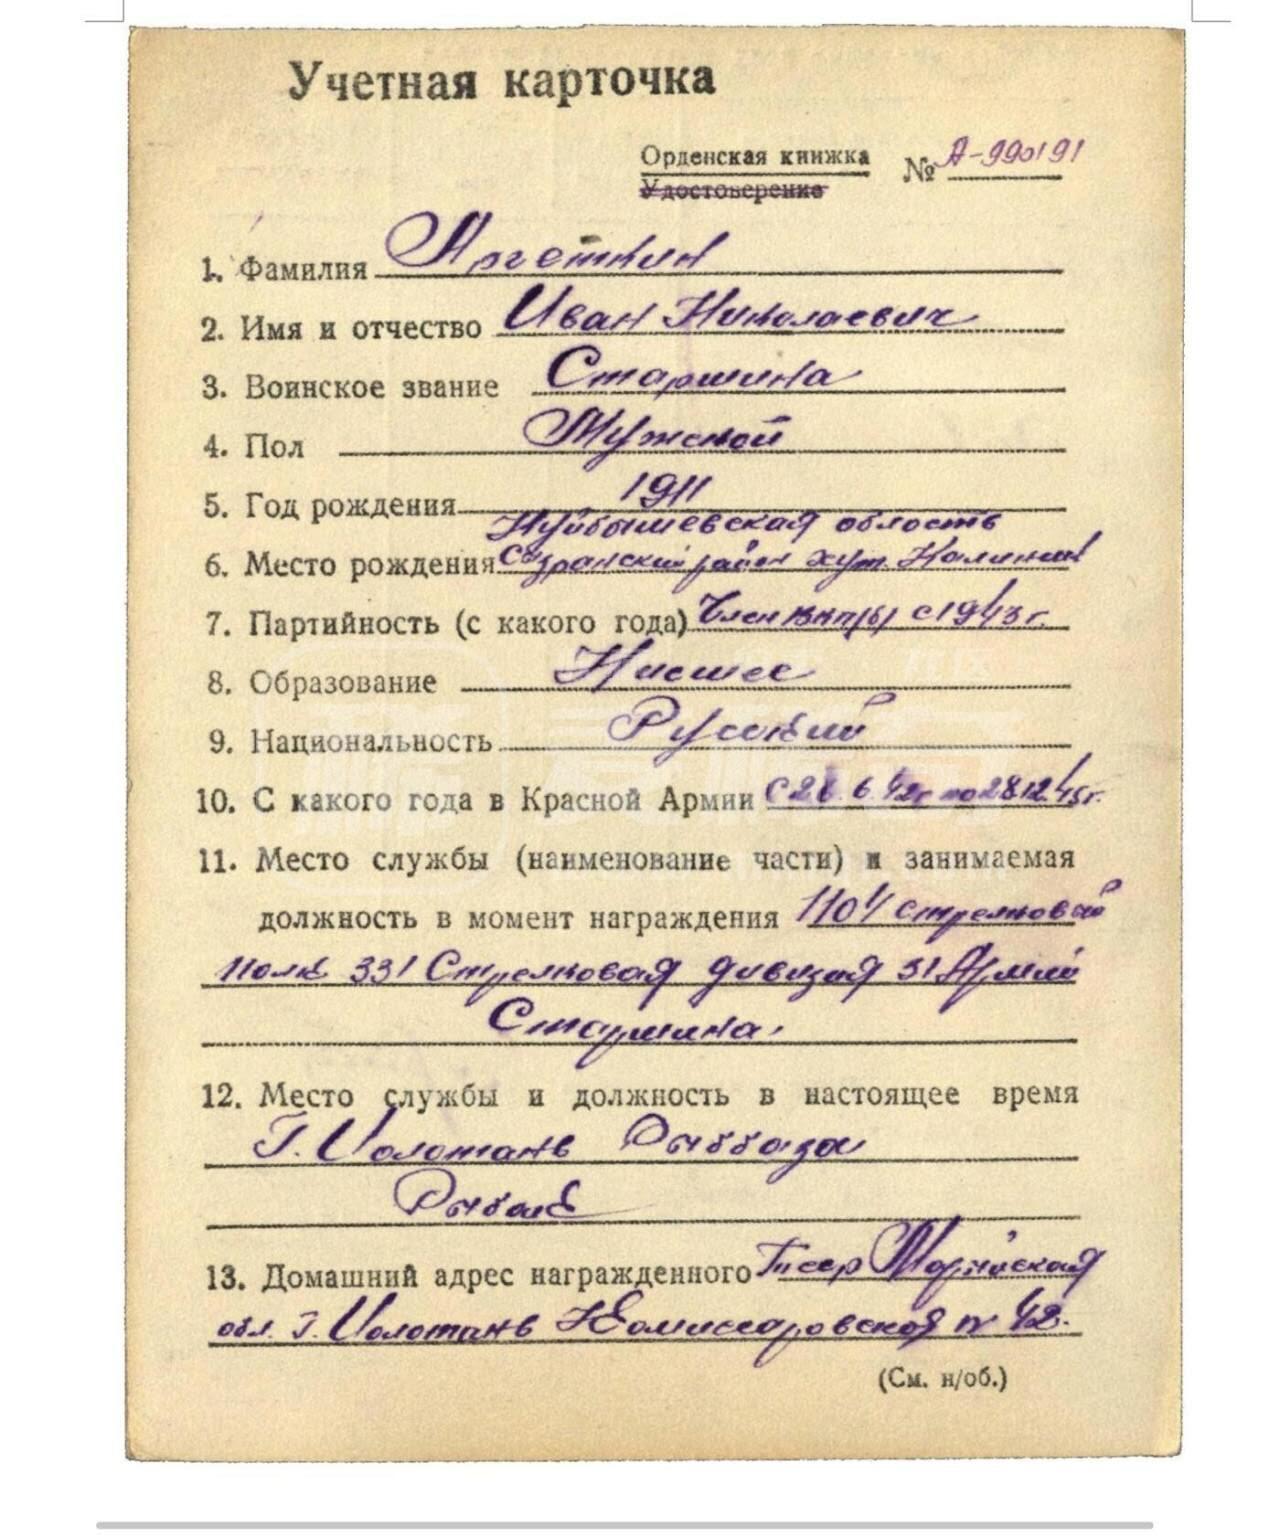 Учетная карточка
Орденская книжка
Удостоверение
№ А-990191
1. Фамилия Аргеткин
2. Имя и отчество Иван Николаевич
3. Воинское звание Старшина
4. Пол Мужской
5. Год рождения 1911
Куйбышевская область
6. Место рождения Сызранский район хут. Калинин
7. Партийность (с какого года) Член ВКП(б) с 1943 г.
8. Образование Нисшее
9. Национальность Русский
10. С какого года в Красной Армии С 28.6.42г по 28.12.45г.
11. Место службы (наименование части) и занимаемая
должность в момент награждения 1104 стрелковый
полк 331 Стрелковая дивизия 31 Армии
Старшина.
12. Место службы и должность в настоящее время
Г. Иолотань Рыббаза
Рыбак
13. Домашний адрес награжденного Тсср Марийская
обл. г. Иолотань Комиссаровская № 42.
(См. н/об.)